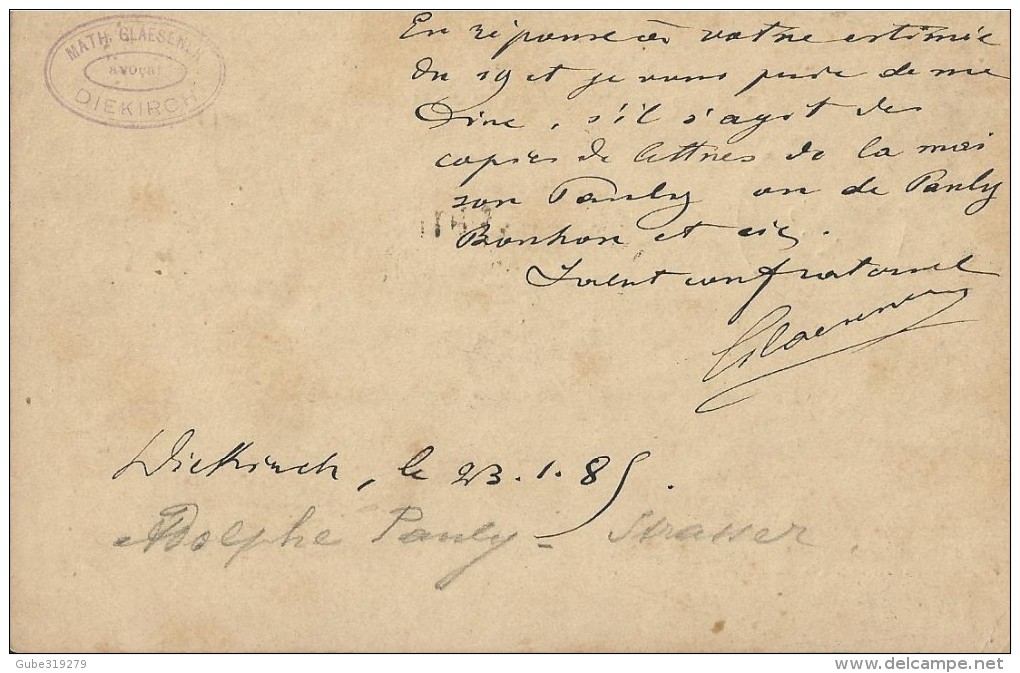 MATH. GLAESENER
avocat
DIEKIRCH
En réponse à votre estimée
du 19 ct je vous prie de me
dire, s'il s'agit des
copies de lettres de la mai
son Pauly ou de Pauly
Bonhon et cie.
Salut confraternel
Glaesener
Diekirch, le 23.1.85.
Adolphe Pauly - Strasser.
Gube319279
delcampe.net